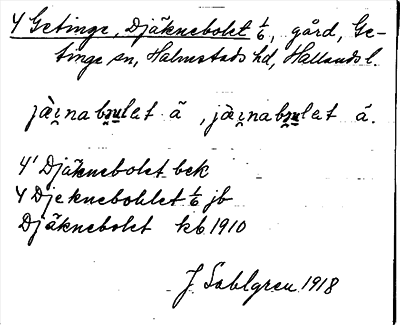 4 Getinge, Djäknebolet 1/6, gård, Ge-
tinge sn, Halmstads hd, Hallands l.
4' Djäknebolet bek
4 Djeknebohlet 1/6 jb
Djäknebolet kb 1910
J. Sahlgren 1918